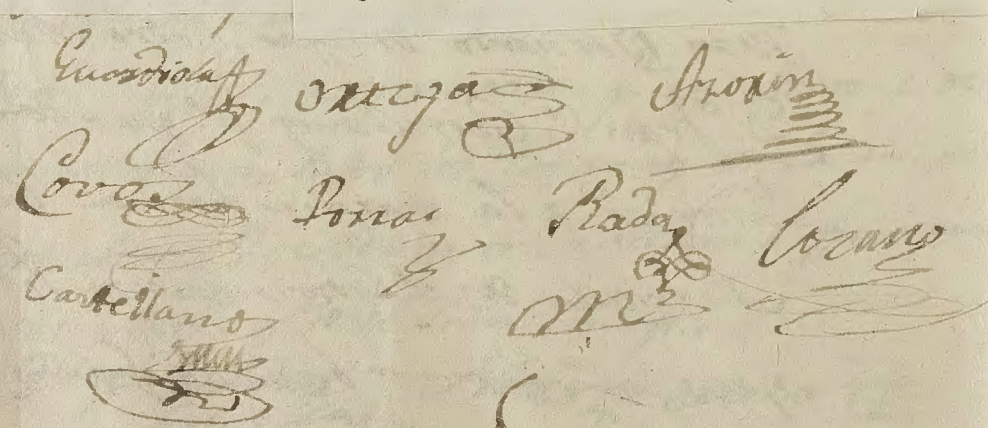 Guardiola Ortega Azorin
Cova Porras Rada Lozano
Castellano